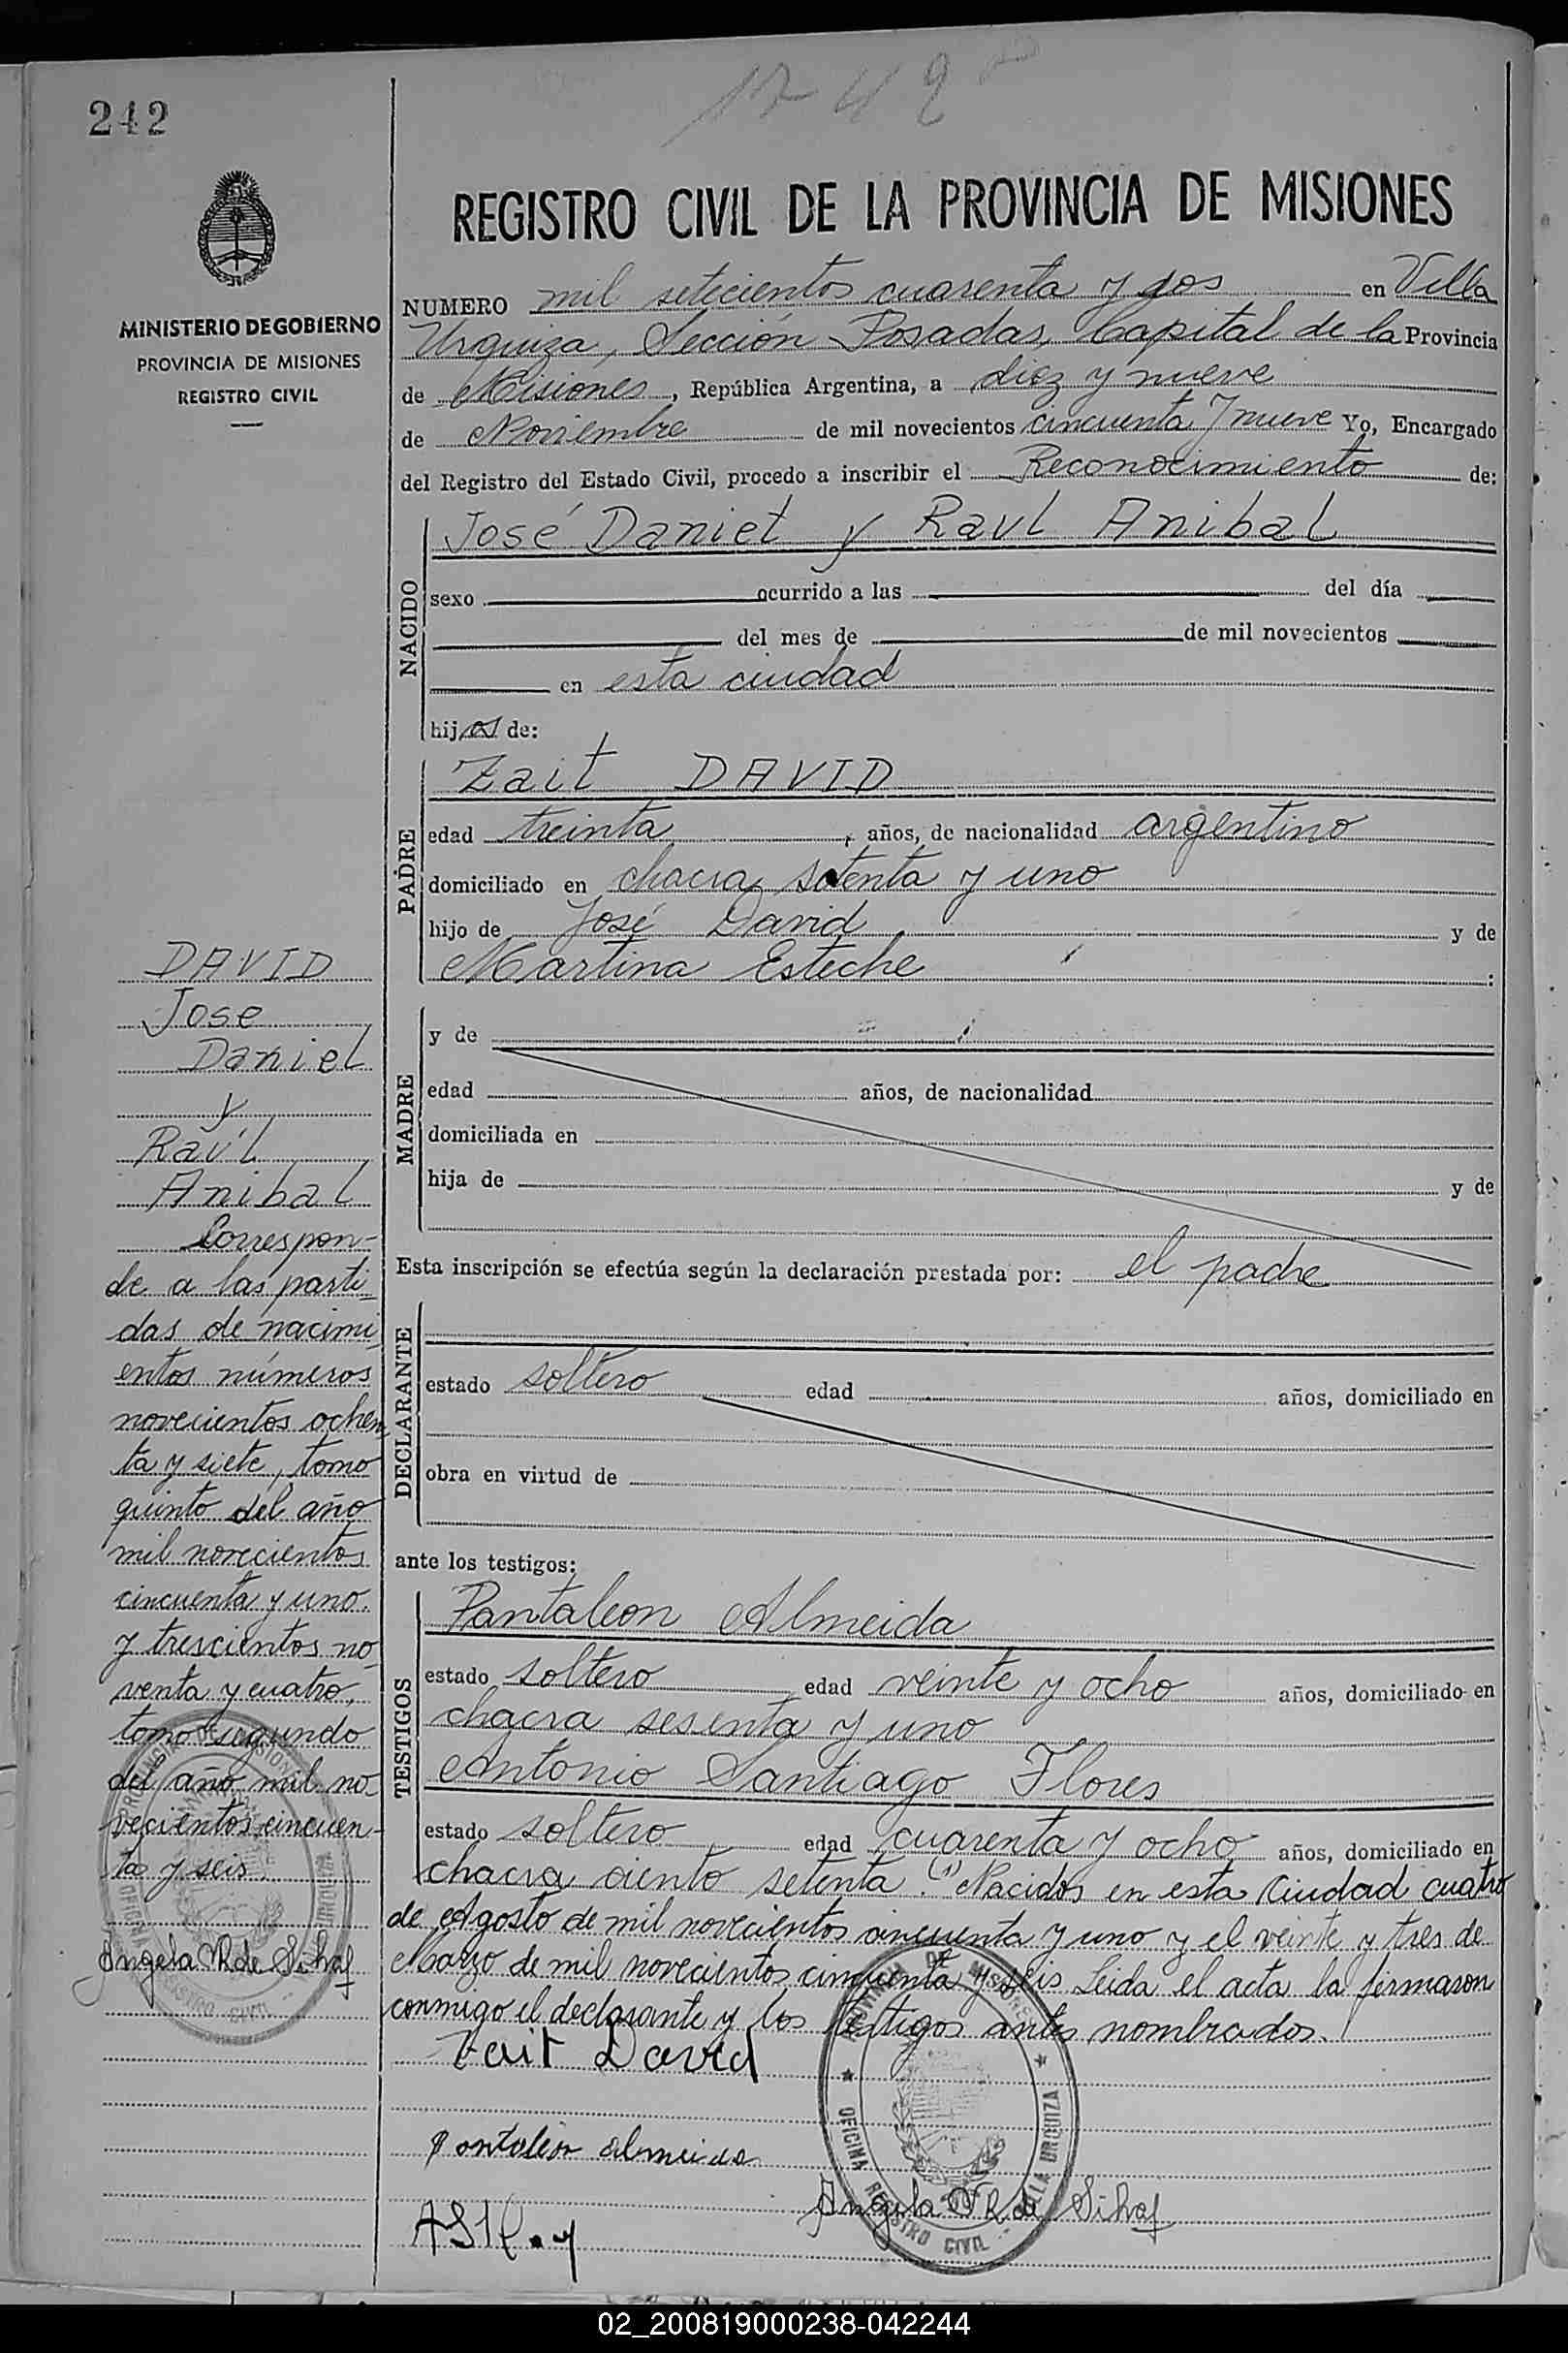 242
1742
REGISTRO CIVIL DE LA PROVINCIA DE MISIONES
MINISTERIO DE GOBIERNO
PROVINCIA DE MISIONES
REGISTRO CIVIL
NUMERO mil setecientos cuarenta y dos en Villa
Urquiza, Sección Posadas, Capital de la Provincia
de Misiones, República Argentina, a diez y nueve
de Noviembre de mil novecientos cincuenta y nueve Yo, Encargado
del Registro del Estado Civil, procedo a inscribir el Reconocimiento de:
NACIDO
José Daniel y Raul Anibal
sexo ocurrido a las del día
del mes de de mil novecientos
en esta ciudad
hijos de:
PADRE
Zait DAVID
edad treinta, años, de nacionalidad argentino
domiciliado en chacra setenta y uno
hijo de José David y de
Martina Esteche :
MADRE
y de
edad años, de nacionalidad
domiciliada en
hija de y de
Esta inscripción se efectúa según la declaración prestada por: el padre
DECLARANTE
estado soltero edad años, domiciliado en
obra en virtud de
ante los testigos:
TESTIGOS
Pantaleon Almeida
estado soltero edad veinte y ocho años, domiciliado en
chacra sesenta y uno
Antonio Santiago Flores
estado soltero edad cuarenta y ocho años, domiciliado en
chacra ciento setenta. (1) Nacidos en esta Ciudad cuatro
de Agosto de mil novecientos cincuenta y uno y el veinte y tres de
Marzo de mil novecientos cincuenta y seis Leida el acta la firmaron
conmigo el declarante y los testigos antes nombrados.
Zait David
Pantaleón Almeida
Angela R de Sihaf
PROVINCIA DE MISIONES
OFICINA REGISTRO CIVIL VILLA URQUIZA
DAVID
Jose
Daniel
y
Raúl
Anibal
Correspon-
de a las parti-
das de nacimi-
entos números
novecientos ochen
ta y siete, tomo
quinto del año
mil novecientos
cincuenta y uno.
y trescientos no-
venta y cuatro,
tomo segundo
del año mil no-
vecientos cincuen-
ta y seis.
Angela R de Sihaf
PROVINCIA DE MISIONES
OFICINA REGISTRO CIVIL URQUIZA
02_200819000238-042244